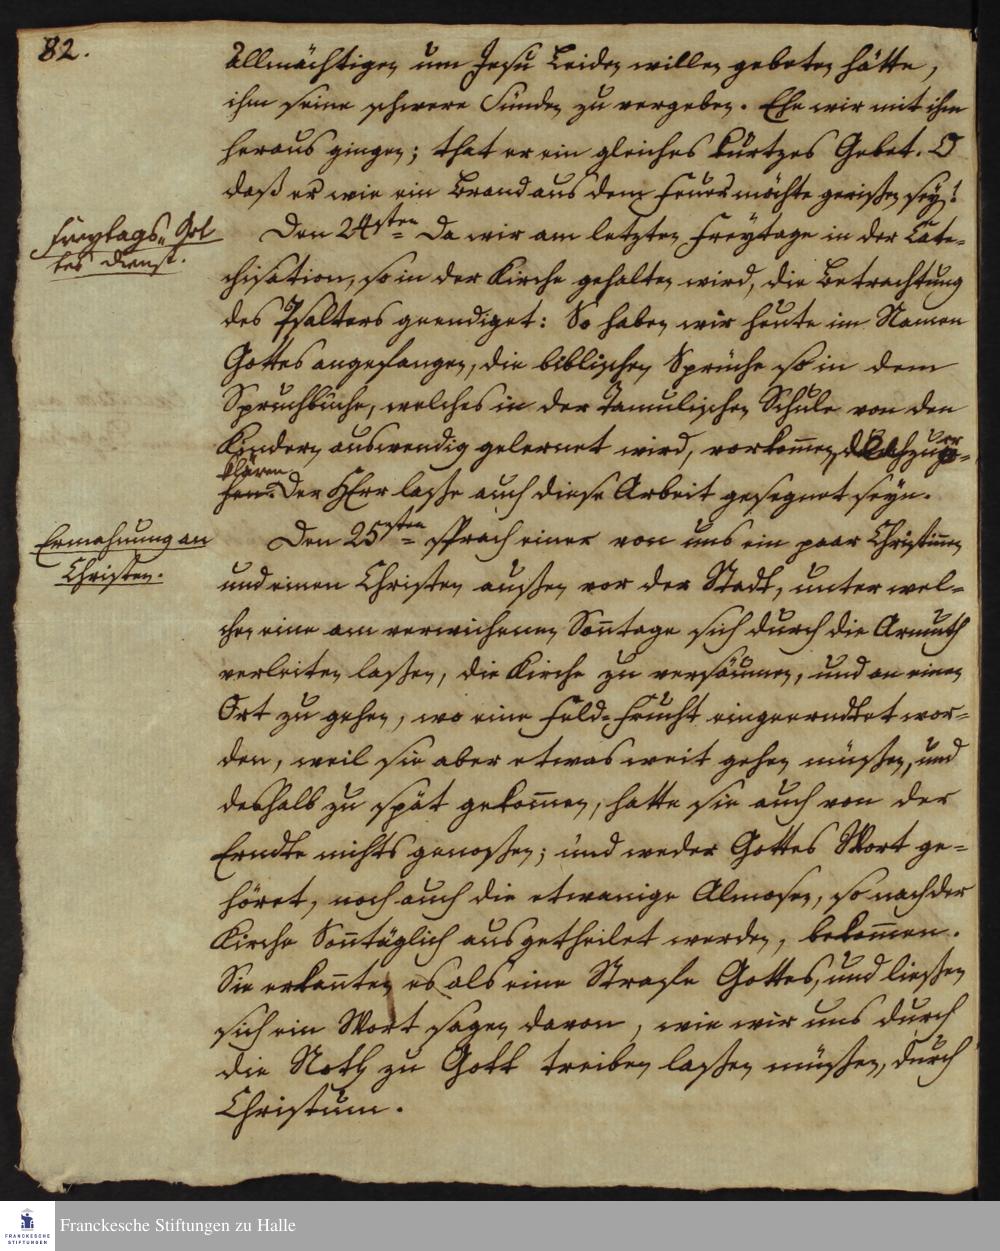 82.
Allmächtigen um Jesu Leiden willen gebeten hätte,
ihm seine schwere Sünden zu vergeben. Ehe wir mit ihm
heraus gingen; that er ein gleiches kürtzes Gebet. O
daß er wie ein Brand aus dem Feuer möchte gerißen seyn!
Freytags-Got
tes dienst.
Den 24sten Da wir am letzten Freytage in der Cate-
chisation, so in der Kirche gehalten wird, die Betrachtung
des Psalters geendiget: So haben wir heute im Namen
Gottes angefangen, die biblischen Sprüche so in dem
Spruchbuche, welches in der Tamulischen Schule von den
Kindern auswendig gelernet wird, vorkom̅en,
klären
Der HErr laße auch diese Arbeit gesegnet seyn.
Ermahnung an
Christen.
Den 25sten sprach einer von uns ein paar Christin̅en
und einen Christen außen vor der Stadt, unter wel-
chen eine am verwichenen Son̅tage sich durch die Armuth
verleiten laßen, die Kirche zu versäumen, und an einen
Ort zu gehen, wo eine Feld-Frucht eingeerndtet wor-
den, weil sie aber etwas weit gehen müßen, und
deßhalb zu spät gekom̅en, hatte sie auch von der
Erndte nichts genoßen; und weder Gottes Wort ge-
höret, noch auch die etwanige Almosen, so nach der
Kirche Son̅täglich ausgetheilet werden, bekom̅en.
Sie erkan̅ten es als eine Strafe Gottes, und ließen
sich ein Wort sagen davon, wie wir uns durch
die Noth zu Gott treiben laßen müßen, durch
Christum.
FRANCKESCHE
STIFTUNGEN
Franckesche Stiftungen zu Halle